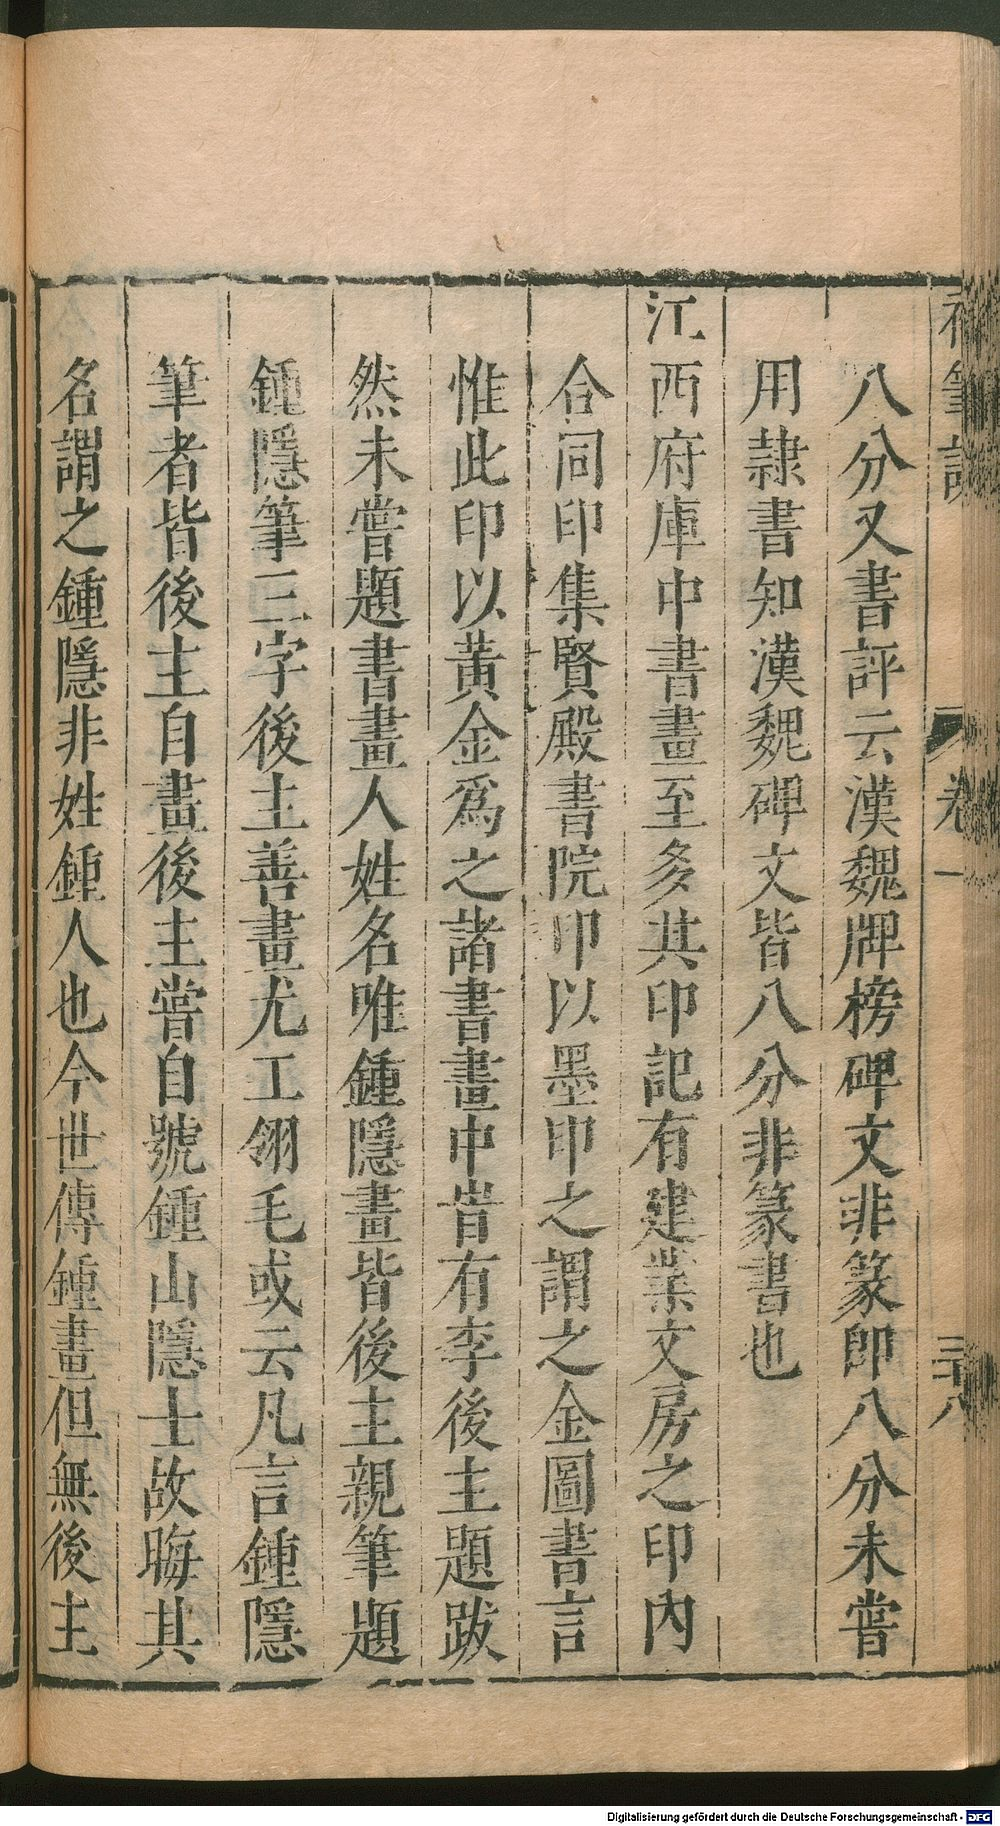 補筆談
卷一
三十八
八分又書評云漢魏牌榜碑文非篆即八分未嘗
用隷書知漢魏碑文皆八分非篆書也
江西府庫中書畫至多其印記有建業文房之印內
合同印集賢殿書院印以墨印之謂之金圖書言
惟此印以黃金爲之諸書畫中皆有李後主題跋
然未嘗題書畫人姓名唯鍾隱畫皆後主親筆題
鍾隱筆三字後主善畫尤工翎毛或云凡言鍾隱
筆者皆後主自畫後主嘗自號鍾山隱士故晦其
名謂之鍾隱非姓鍾人也今世傳鍾畫但無後主
Digitalisierung gefördert durch die Deutsche Forschungsgemeinschaft - DFG